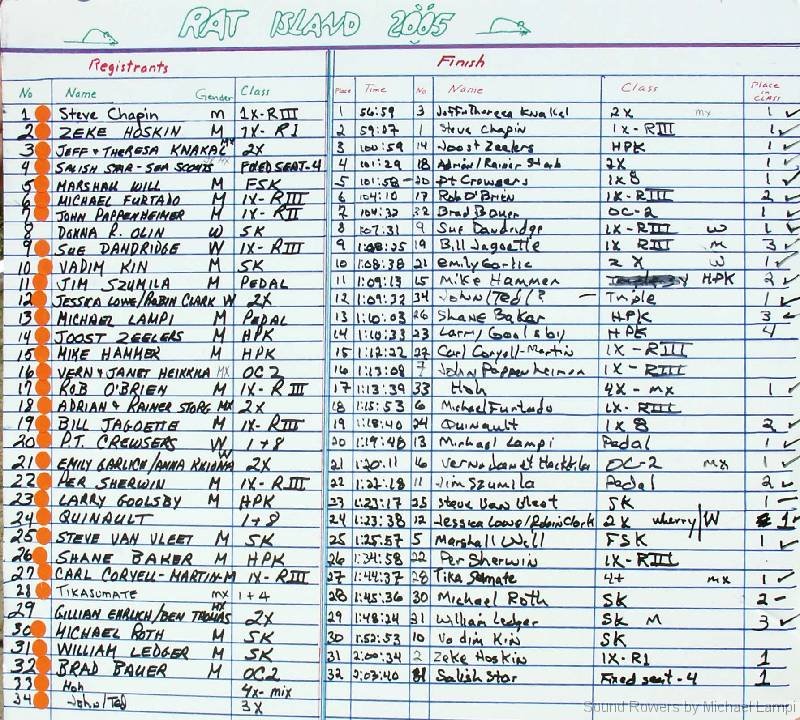 RAT ISLAND 2005
Registrants
No Name Gender Class
1 Steve Chapin M 1X-RIII
2 ZEKE HOSKIN M 1X-RI
3 JEFF + THERESA KNAKAL MX 2X
4 SALISH STAR-SEA SCOUTS FIXED SEAT-4
5 MARSHALL WILL M FSK
6 MICHAEL FURTADO M 1X-RIII
7 JOHN PAPPENHEIMER M 1X-RII
8 DONNA R. OLIN W SK
9 SUE DANDRIDGE W 1X-RIII
10 VADIM KIN M SK
11 JIM SZUMILA M PEDAL
12 JESSICA LOWE/ROBIN CLARK W 2X
13 MICHAEL LAMPI M PEDAL
14 JOOST ZEELERS M HPK
15 MIKE HAMMER M HPK
16 VERN + JANET HEIKKILA MX OC2
17 ROB O'BRIEN M 1X-RIII
18 ADRIAN + RAINER STORG MX 2X
19 BILL JAGOETTE M 1X-RIII
20 P.T. CREWSERS W 1+8
21 EMILY GARLICH/ANNA W 2X
22 PER SHERWIN M 1X-RIII
23 LARRY GOOLSBY M HPK
24 QUINAULT 1+8
25 STEVE VAN VLEET M SK
26 SHANE BAKER M HPK
27 CARL CORYELL-MARTIN-M 1X-RIII
28 TIKASUMATE mx 1+4
29 GILLIAN EHRLICH/BEN THOMAS MX 2X
30 MICHAEL ROTH M SK
31 WILLIAM LEDGER M SK
32 BRAD BAUER M OC2
33 Hoh 4X-mix
34 John/Ted 3X
Finish
Place Time No Name Class Place in CLASS
1 56:59 3 Jeff/Theresa Knakal 2X mx 1 ✓
2 59:07 1 Steve Chapin 1X-RIII 1 ✓
3 100:59 14 Joost Zeelers HPK 1 ✓
4 101:29 18 Adrian/Rainer 2X 1 ✓
5 101:58 - 20 Pt Crowsers 1X8 1 ✓
6 104:10 17 Rob O'Brien 1X-RIII 2 ✓
7 104:32 32 Brad Bauer OC-2 1 ✓
8 107:31 9 Sue Dandridge 1X-RIII W 1 ✓
9 1:08:25 19 Bill Jagoette 1X RIII M 3 ✓
10 1:08:38 21 emily 2X W 1 ✓
11 1:09:13 15 Mike Hammer HPK 2 ✓
12 1:09:22 34 John/Ted/? - Triple 1 ✓
13 1:10:03 26 Shane Baker HPK 3
14 1:10:33 23 Larry Goolsby HPK 4
15 1:12:22 27 Carl Coryell-Martin 1X-RIII
16 1:13:08 7 John Pappenheimer 1X-RIII
17 1:13:39 33 Hoh 4X-mx 1 ✓
18 1:15:53 6 Michael Furtado 1X-RIII
19 1:18:40 24 Quinault 1X8 2 ✓
20 1:19:48 13 Michael Lampi Pedal 1 ✓
21 1:20:11 16 Vern/Janet OC-2 mx 1 ✓
22 1:22:18 11 Jim Szumila Pedal 2 ✓
23 1:23:17 25 Steve Van Vleet SK 1 -
24 1:23:38 12 Jessica Lowe/Robin Clark 2X wherry/W 1 ✓
25 1:25:57 5 Marshall Will FSK 1 ✓
26 1:34:58 22 Per Sherwin 1X-RIII
27 1:44:37 28 Tika Sumate 4+ mx 1 ✓
28 1:45:36 30 Michael Roth SK 2 -
29 1:48:24 31 William Ledger SK M 3 ✓
30 1:52:53 10 Vadim Kin SK
31 2:00:34 2 Zeke Hoskin 1X-R1 1
32 2:03:40 Salish Star Fixed seat-4 1
Sound Rowers by Michael Lampi